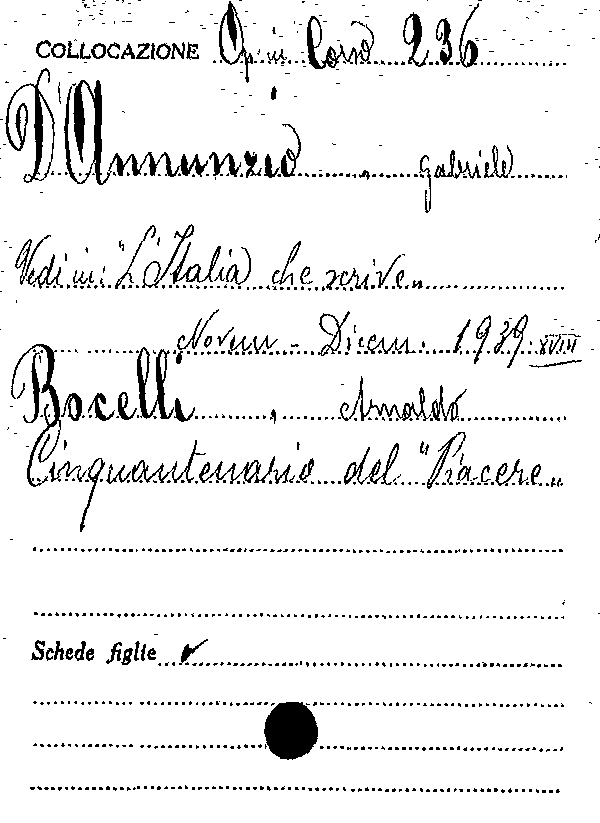 COLLOCAZIONE Op. in Corso 236
D'Annunzio, Gabriele
Vedi in: "L'Italia che scrive„
Novem - Dicem. 1939. XVIII
Bocelli, Arnaldo
Cinquantenario del "Piacere„
Schede figlie